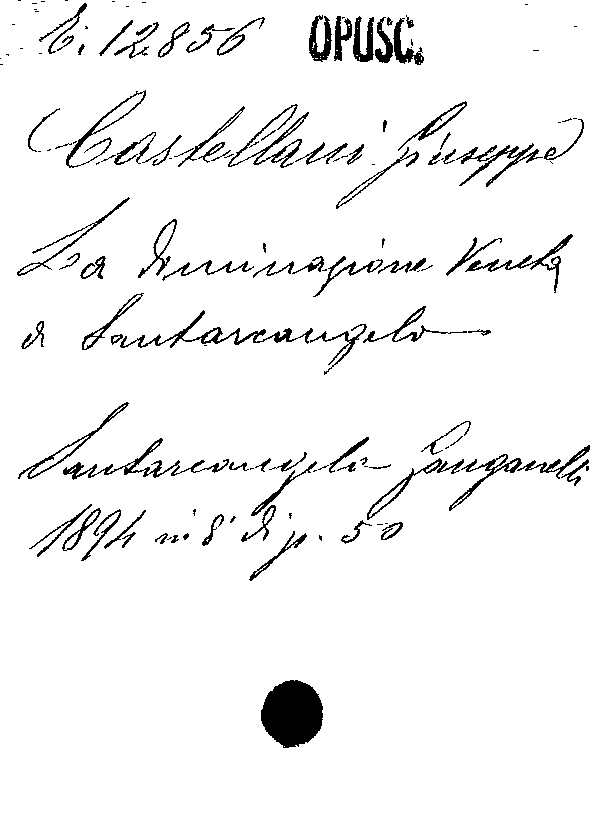 E. 12856 OPUSC.
Castellani Giuseppe
La dominazione Veneta
a Santarcangelo
Santarcangelo Ganganelli
1894 in 8° di p. 50